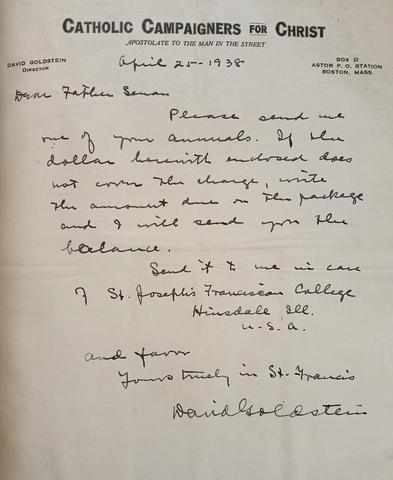 CATHOLIC CAMPAIGNERS FOR CHRIST
APOSTOLATE TO THE MAN IN THE STREET
DAVID GOLDSTEIN
DIRECTOR
BOX D
ASTOR P. O. STATION
BOSTON, MASS.
April 25-1938
Dear Father Senan
Please send me
one of your annuals. If the
dollar herewith enclosed does
not cover the charge, write
the amount due on the package
and I will send you the
balance.
Send it to me in care
of St. Joseph's Franciscan College
Hinsdale Ill.
U.S.A.
and favor
Yours truely in St. Francis
David Goldstein